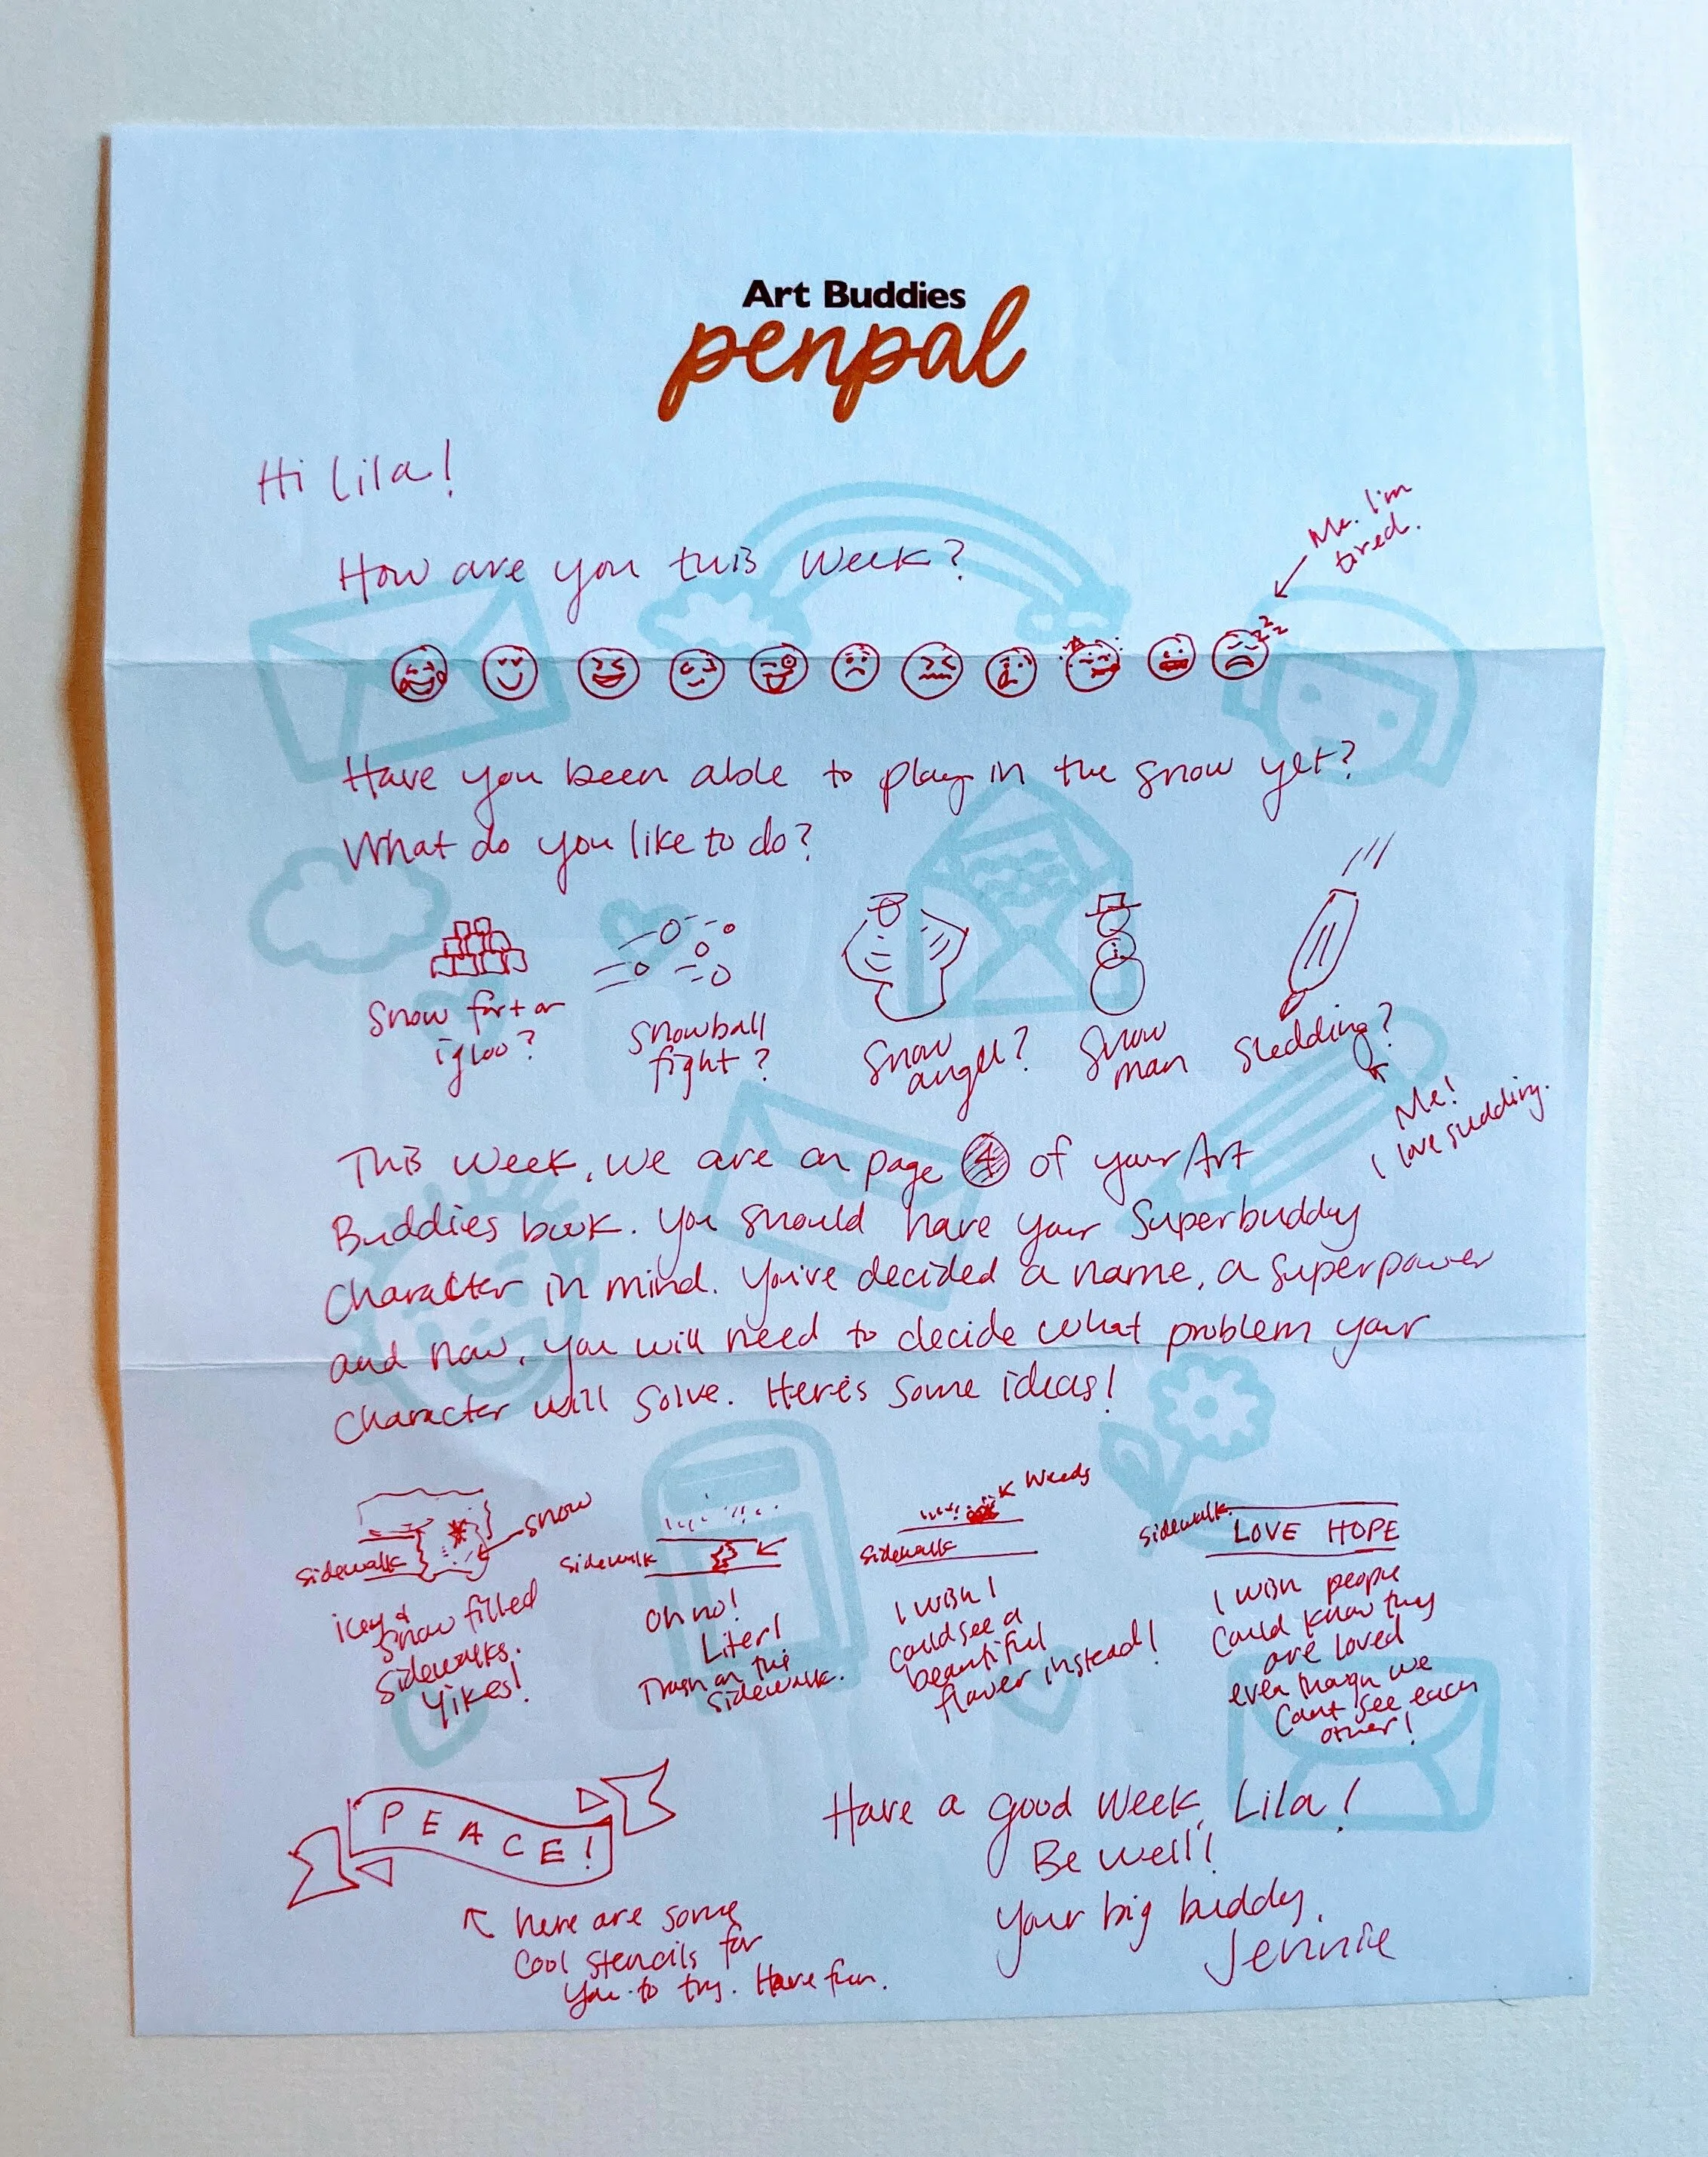 Art Buddies
penpal
Hi Lila!
Me. I'm
tired.
How are you this week?
zzz
Have you been able to play in the snow yet?
What do you like to do?
Snow fort or
igloo?
Snowball
fight?
Snow
angel?
Snow
man
Sledding?
Me!
I love sledding.
This week, we are on page 4 of your Art
Buddies book. You should have your Superbuddy
Character in mind. You've decided a name, a superpower
and now, you will need to decide what problem your
Character will solve. Here's some ideas!
snow
sidewalk
icey &
snow filled
sidewalks.
Yikes!
sidewalk
Oh no!
Liter!
Trash on the
sidewalk.
weeds
sidewalk
I wish I
could see a
beautiful
flower instead!
sidewalk
LOVE HOPE
I wish people
could know they
are loved
even though we
Cant see each
other!
PEACE!
here are some
cool stencils for
you to try. Have fun.
Have a good week, Lila!
Be well!
Your big buddy,
Jennie